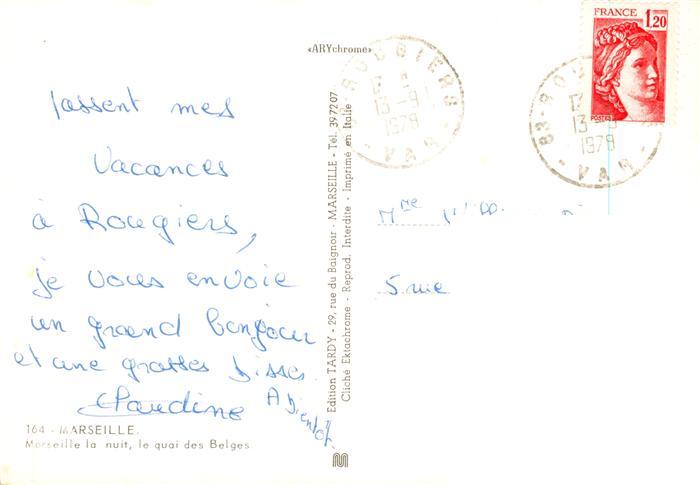 «ARYchrome»
FRANCE
1,20
POSTES
83-ROUGIERS
13-9
1978
-VAR-
83-ROUG
13
1978
-VAR-
passent mes
vacances
à Rougiers,
je vous envoie
un grand bonjour
et une grosses bisses.
Claudine
A Bientôt
164 - MARSEILLE.
Marseille la nuit, le quai des Belges
Edition TARDY - 29, rue du Baignoir - MARSEILLE - Tél. 39 72 07
Cliché Ektachrome - Reprod. Interdite - Imprimé en Italie
Mme
5 rue